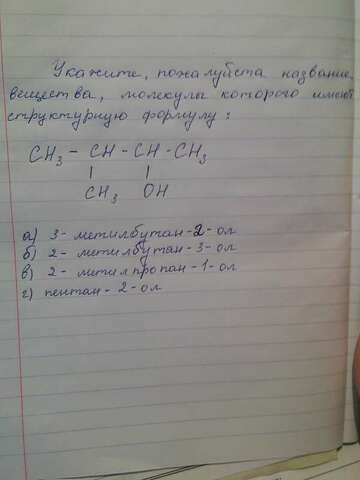 Укажите, пожалуйста название
вещества, молекулы которого имеют
структурную формулу:
CH3 - CH - CH - CH3
CH3 OH
а) 3- метилбутан-2-ол
б) 2- метилбутан-3-ол
в) 2- метилпропан-1-ол
г) пентан-2-ол